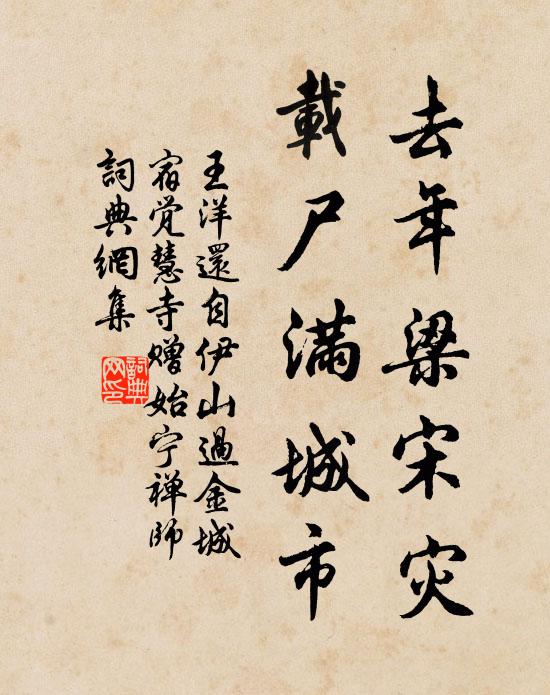 去年梁宋灾
載尸满城市
王洋還自伊山過金城
宿觉慧寺赠始宁禅師
詞典網集
詞典网印